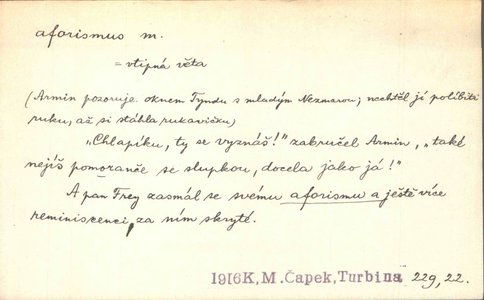 aforismus m.
= vtipná věta
(Armin pozoruje oknem Tyndu s mladým Nezmarou; nechtěl jí políbiti
ruku, až si stáhla rukavičku)
„Chlapíku, ty se vyznáš!" zabručel Armin, „také
nejíš pomoranče se slupkou, docela jako já!"
A pan Frey zasmál se svému aforismu a ještě více
reminiscenci, za ním skryté.
1916K, M. Čapek, Turbina 229, 22.